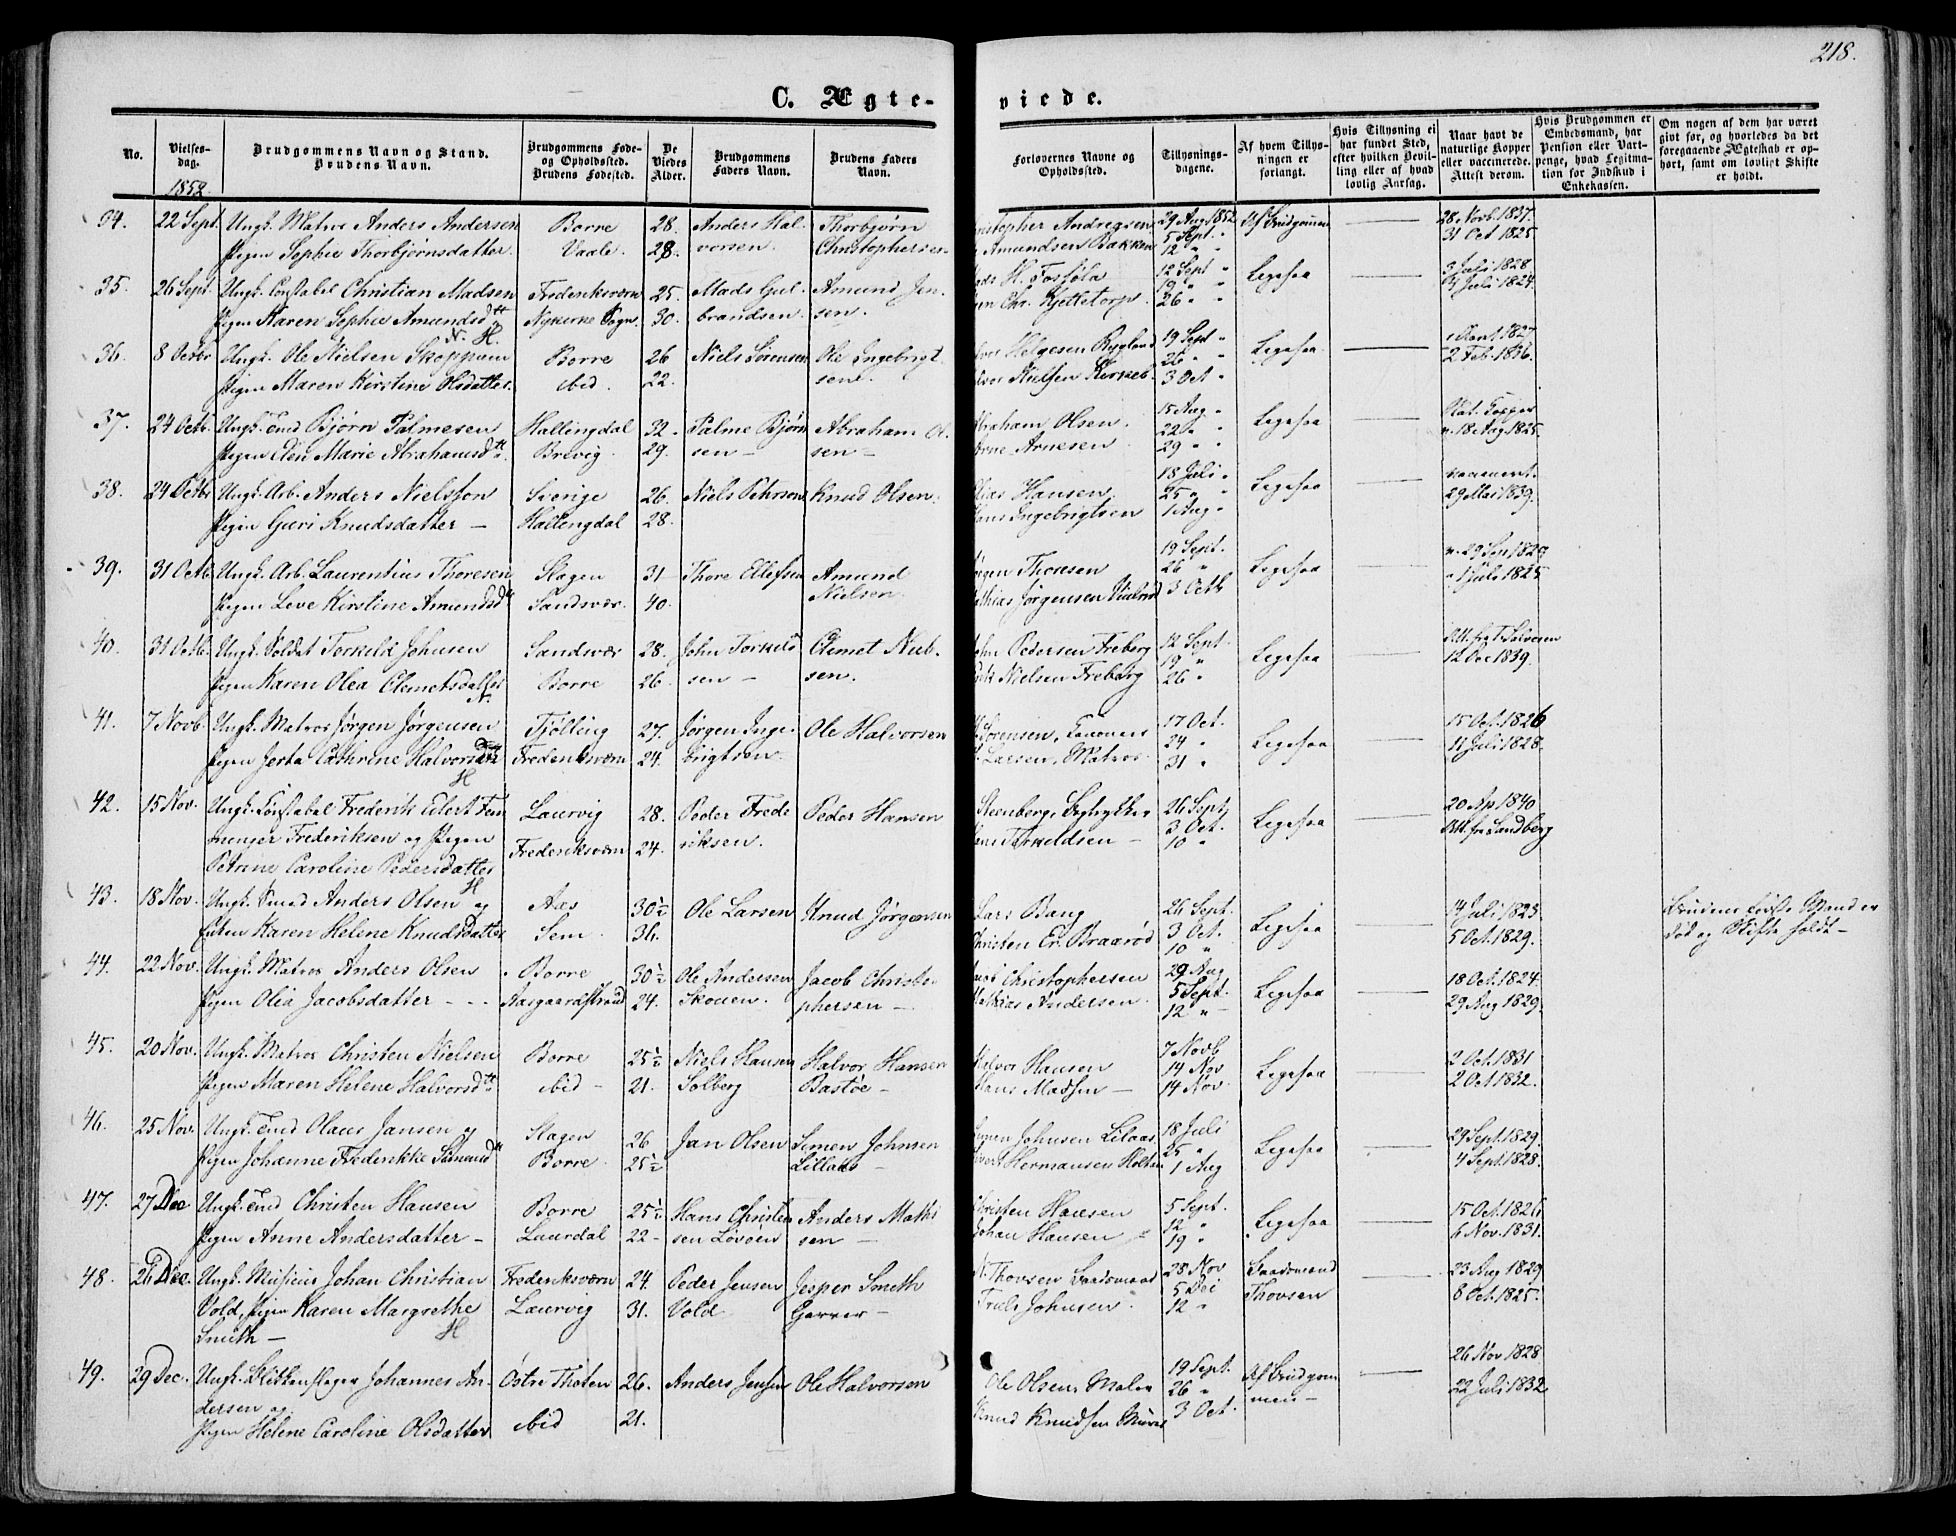 218.
C. Ægte-
viede.
No.
Vielses-
dag.
Brudgommens Navn og Stand.
Brudens Navn.
Brudgommens Føde-
og Opholdssted.
Brudens Fødested.
De
Viedes
Alder.
Brudgommens
Faders Navn.
Brudens Faders
Navn.
Forlovernes Navne og
Opholdssted.
Tillysnings-
dagene.
Af hvem Tillys-
ningen er
forlangt.
Hvis Tillysning ei
har fundet Sted,
efter hvilken Bevil-
ling eller af hvad
lovlig Aarsag.
Naar havt de
naturlige Kopper
eller vaccinerede.
Attest derom.
Hvis Brudgommen er
Embedsmand, har
Pension eller Vart-
penge, hvad Legitima-
tion for Indskud i
Enkekassen.
Om nogen af dem har været
givt før, og hvorledes da det
foregaaende Ægteskab er op-
hørt, samt om lovligt Skifte
er holdt.
1852
34. 22 Sept. Ungk. Matros Anders Andersen Borre 28. Anders Hal- Thorbjørn
Pigen Sophie Thorbjørnsdatter. Vaale. 28. vorsen. Christophersen
Andreasen 29 Aug 1852 Af Brudgommen 28 Novb. 1837.
Amundsen Bakken 5 Sept. 31 Oct 1825.
12 " "
35. 26 Sept. Ungk. Constabel Christian Madsen Frederiksværn 25. Mads Gul- Amund Jen-
Pigen Karen Sophie Amundsdtr Nykirke Sogn. 30. brandsen. sen.
H. Fosføla 12 Sept " Ligesaa 3 Juli 1828
Chr. Kjettetorp. 19 " " Juli 1824.
26 " "
36. 8 Octbr Ungk. Ole Nielsen Skoppum Borre 26 Niels Sørensen Ole Ingebrigt
Pigen Maren Kirstine Olsdatter. ibid. 22. sen.
Helgesen Rygland 19 Sept " Ligesaa 1827
Nielsen Kirkeb. 26 " " 2 Feb. 1836.
3 Oct "
37. 24 Octb. Ungk. Bjørn Palmesen Hallingdal 32. Palme Bjørn Abraham Ol
Pigen Elen Marie Abrahamsdtr. Brevig. 29. sen — sen —
Abraham Olsen. 15 Aug " Ligesaa Nat. Kopper
Arne Arnesen 22 " " 18 Aug 1825.
29 " "
38. 24 Octbr Ungk. Arb. Anders Nielsson Sverige 26. Niels Pehrsen Knud Olsen.
Pigen Guri Knudsdatter — Hallingdal 28.
Elias Hansen. 18 Juli " Ligesaa
Hans Ingebrigtsen 25 " " 29 Mai 1839.
1 Aug "
39. 31 Octb. Ungk. Arb. Laurentius Thoresen Slagen 31 Thore Ellefsen Amund
Pigen Leve Kirstine Amundsdtr Sandsvær. 40. Nielsen.
Jørgen Thoresen 19 Sept. Ligesaa
Mathias Jørgensen 26 " 1 Juli 1825
3 Octb
40. 31 Octb. Ungk. Soldat Torkild Johnsen Sandsvær 28. John Torkild Clemet Niel-
Pigen Karen Olea Clemetsdatter Borre 26. sen — sen.
John Pedersen Freberg 12 Sept. Ligesaa
Nielsen Freberg 19 " 12 Dec 1839.
26 "
41. 7 Novb. Ungk. Matros Jørgen Jørgensen Tjølling 27. Jørgen Inge- Ole Halvorsen
Pigen Jerta Cathrine Halvorsdtr Frederiksværn 24. brigtsen.
Sørensen, 17 Oct. Ligesaa 15 Oct. 1826
Larsen, Matros. 24 " 11 Juli 1828.
31 "
42. 15 Nov. Ungk. Constabel Frederik Eilert Fem Laurvig 28. Peder Frede Peder Hansen
menger Frederiksen og Pigen Frederiksværn 24. riksen.
Petrine Caroline Pedersdatter
Steenberg, 26 Sept. Ligesaa 20 Ap 1840
Torkeldsen — 3 Oct. Att. fra Sandberg
10 "
43. 18 Nov. Ungk. Smed Anders Olsen og Aas 30½ Ole Larsen Knud Jørgensen
Enken Karen Helene Knudsdatter Sem. 36.
Lars Bang 26 Sept. Ligesaa 14 Juli 1823. Brudens første Mand er
Christen Er. Braarød 3 Oct. 5 Oct. 1829. død og Skifte holdt —
10 "
44. 22 Nov. Ungk. Matros Anders Olsen Borre 30½ Ole Andersen Jacob Christo
Pigen Olia Jacobsdatter Aasgaardstrand 24. Skouen. phersen —
Christophersen 29 Aug Ligesaa 18 Oct. 1824.
Mathias Andersen. 5 Sept. 29 Aug 1829.
12 "
45. 20 Nov. Ungk. Matros Christen Nielsen Borre 25½ Niels Hansen Halvor Hansen
Pigen Maren Helene Halvorsdtr ibid — 21. Solberg Bastøe —
Halvor Hansen 7 Novb Ligesaa 2 Oct. 1831
Hans Madsen — 14 Nov 2 Oct 1832.
14 Nov.
46. 25 Nov. Ungk. Olaus Jansen og Slagen 26 Jan Olsen Simen Johnsen
Pigen Johanne Frederikke Simensdtr Borre 25½ Lillaas —
Simen Johnsen Lilaas 18 Juli Ligesaa 29 Sept. 1829.
Hermansen Holtan 25 " 4 Sept. 1828.
1 Aug
47. 27 Dec Ungk. Christen Hansen Borre 25½ Hans Christen Anders Mathi
Pigen Anne Andersdatter — Laurdal 22 — sen Løvøen sen —
Christen Hansen 5 Sept. Ligesaa 15 Oct. 1826
Johan Hansen 12 " 6 Nov. 1831.
19 "
48. 26 Dec. Ungk. Musicus Johan Christian Frederiksværn 24. Peder Jensen Jesper Smith
Vold, Pigen Karen Margrethe Laurvig 31. Vold Garver —
Smith —
Thovsen Baadsmand 28 Nov Baadsmand 23 Aug 1829
Truls Johnsen. 5 Dec Thovsen 8 Oct. 1825.
12 "
49. 29 Dec. Ungk. Blikkenslager Johannes An- Østre Thoten 26. Anders Jensen Ole Halvorsen
dersen og
Pigen Helene Caroline Olsdatter ibid 21.
Ole Olsen, Maler 19 Sept. Af Brudgom 26 Nov 1828
Knud Knudsen 26 " men — 22 Juli 1832
3 Oct.